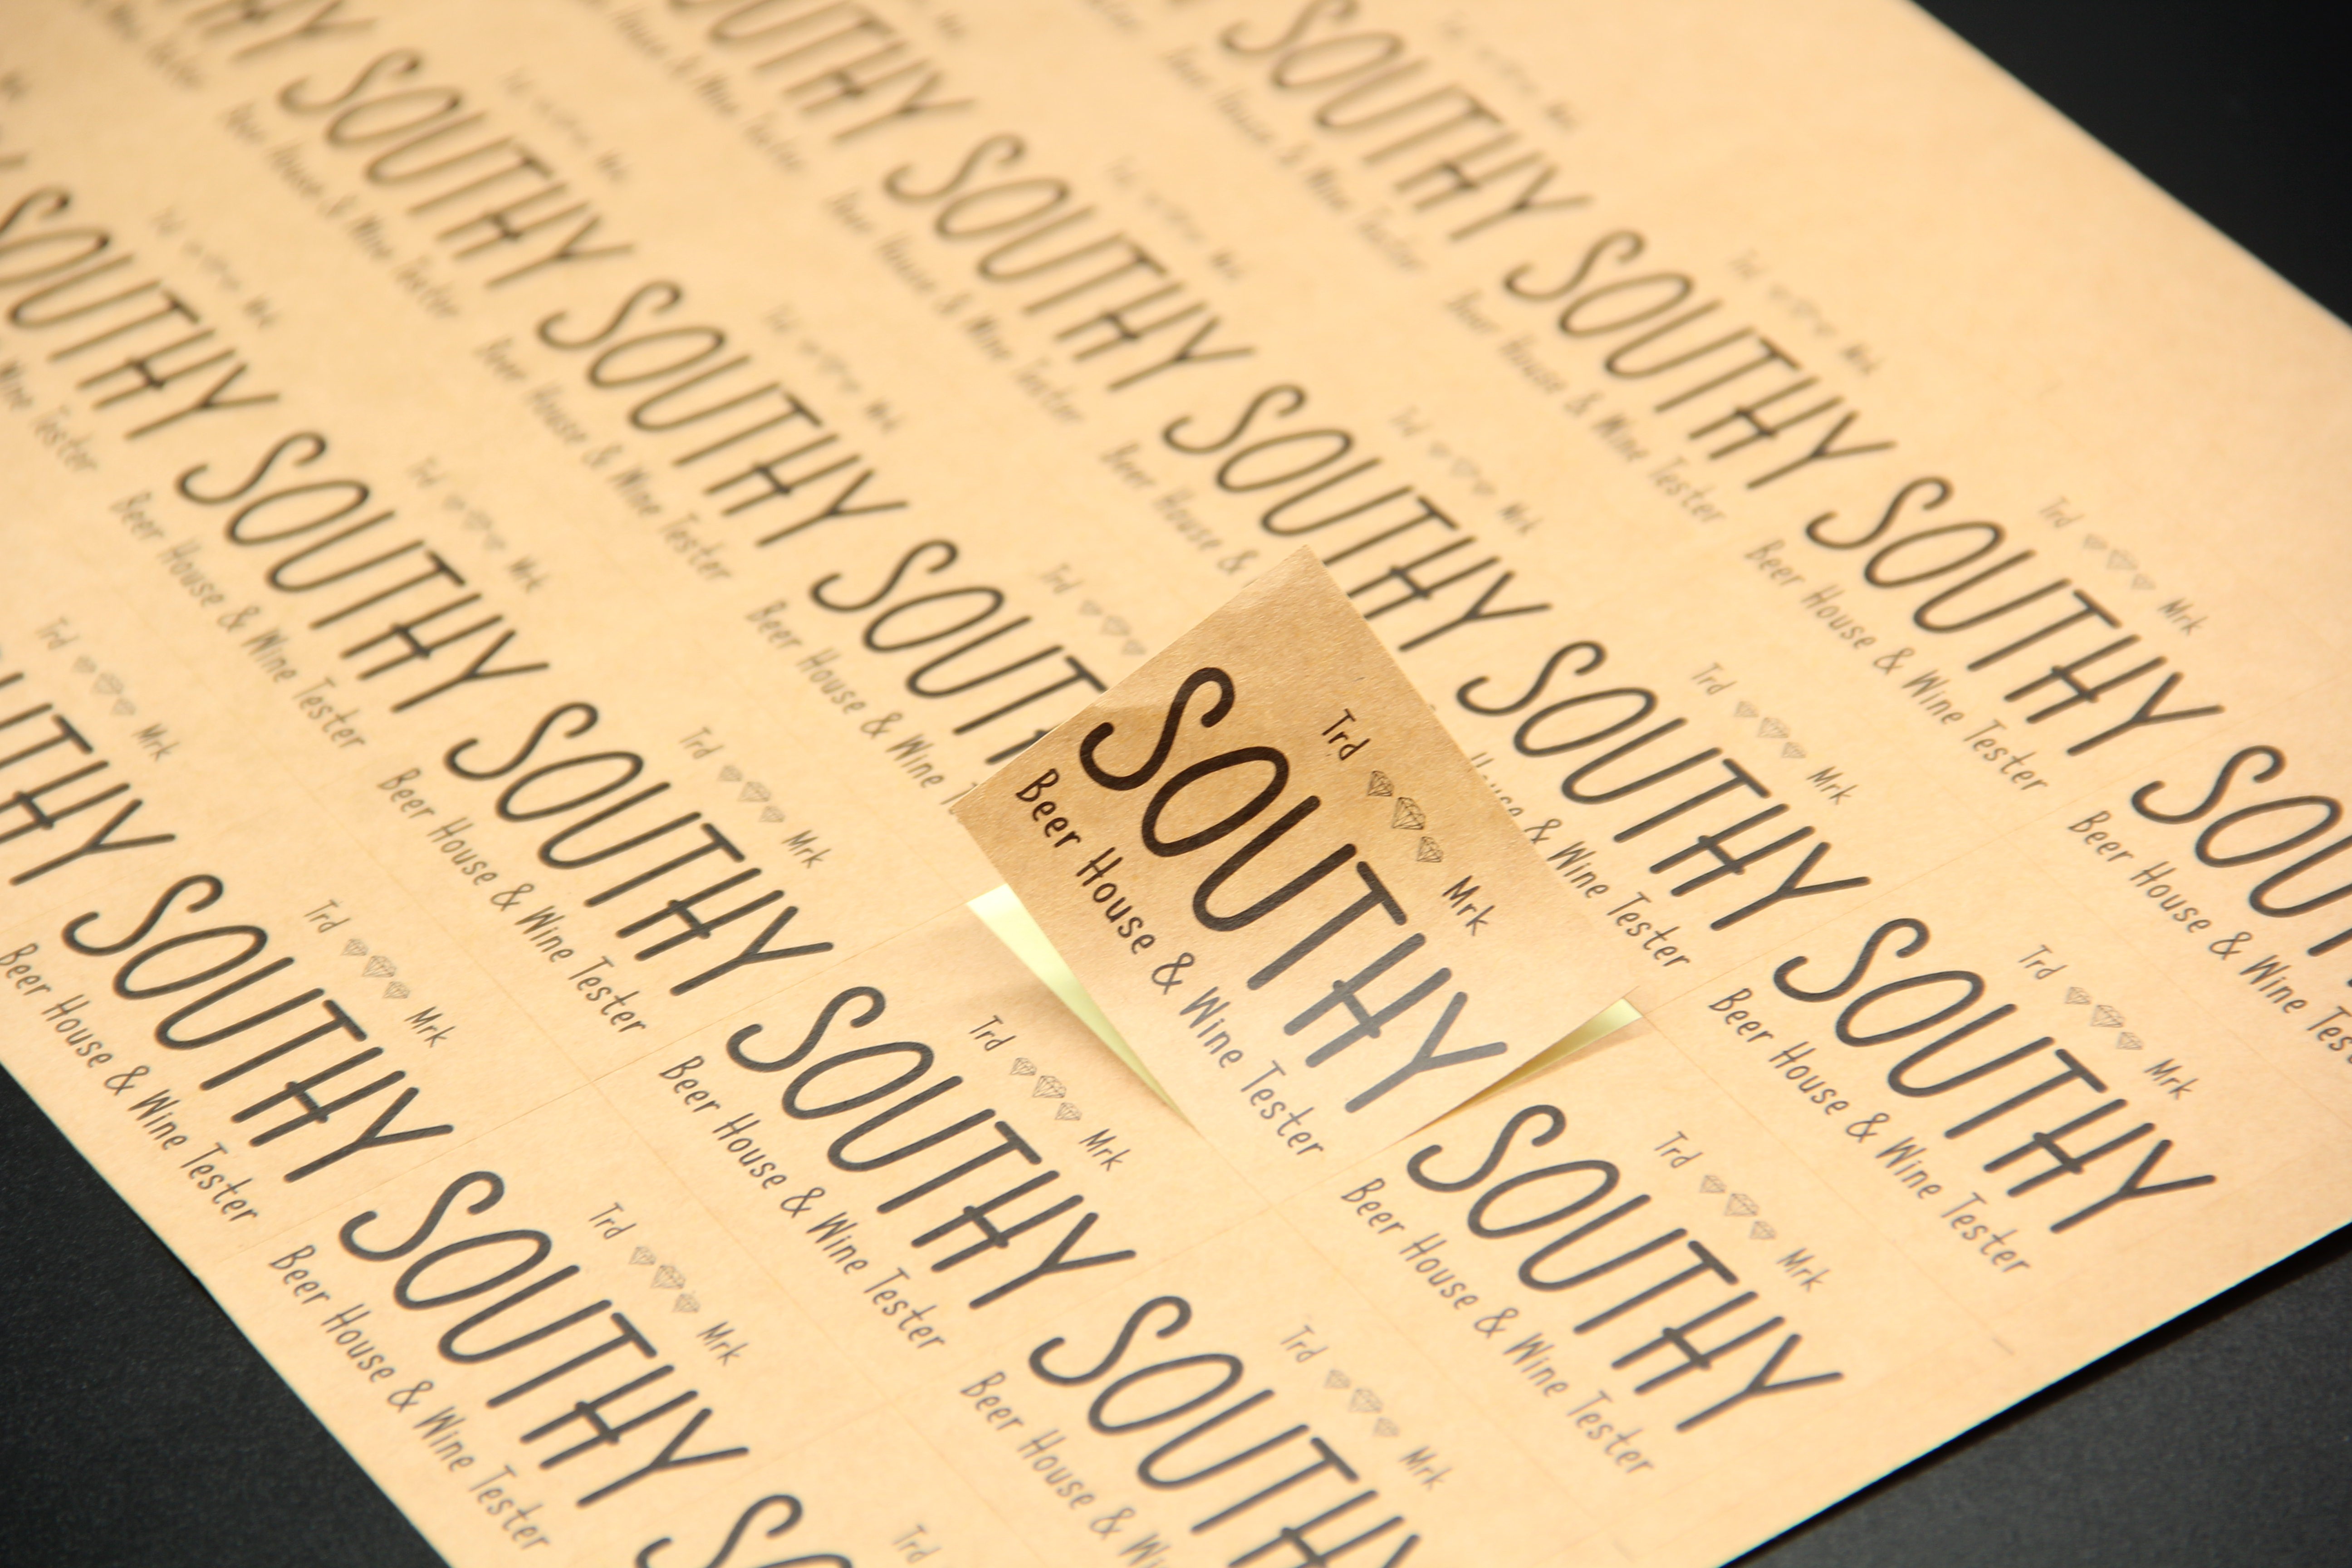 Trd Mrk
SOUTHY
Beer House & Wine Tester